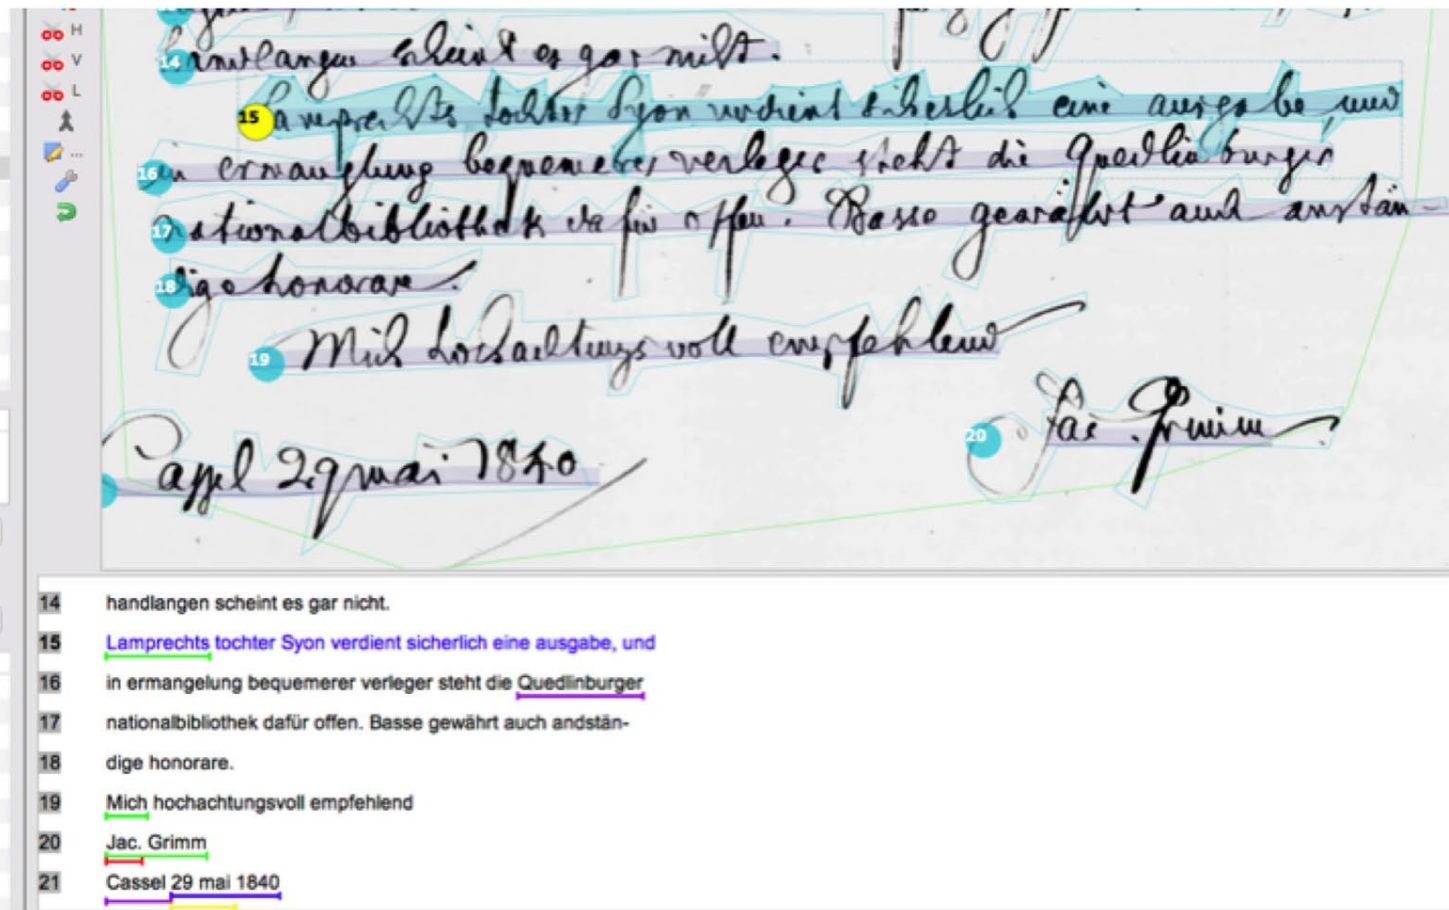 H
V
L
...
14 handlangen scheint es gar nicht.
15 Lamprechts tochter Syon verdient sicherlich eine ausgabe, und
16 in ermanglung bequemerer verleger steht die Quedlinburger
17 nationalbibliothek dafür offen. Basse gewährt auch anstän-
18 dige honorare.
19 Mich hochachtungsvoll empfehlend
20 Jac. Grimm
Cassel 29 mai 1840
14 handlangen scheint es gar nicht.
15 Lamprechts tochter Syon verdient sicherlich eine ausgabe, und
16 in ermangelung bequemerer verleger steht die Quedlinburger
17 nationalbibliothek dafür offen. Basse gewährt auch andstän-
18 dige honorare.
19 Mich hochachtungsvoll empfehlend
20 Jac. Grimm
21 Cassel 29 mai 1840